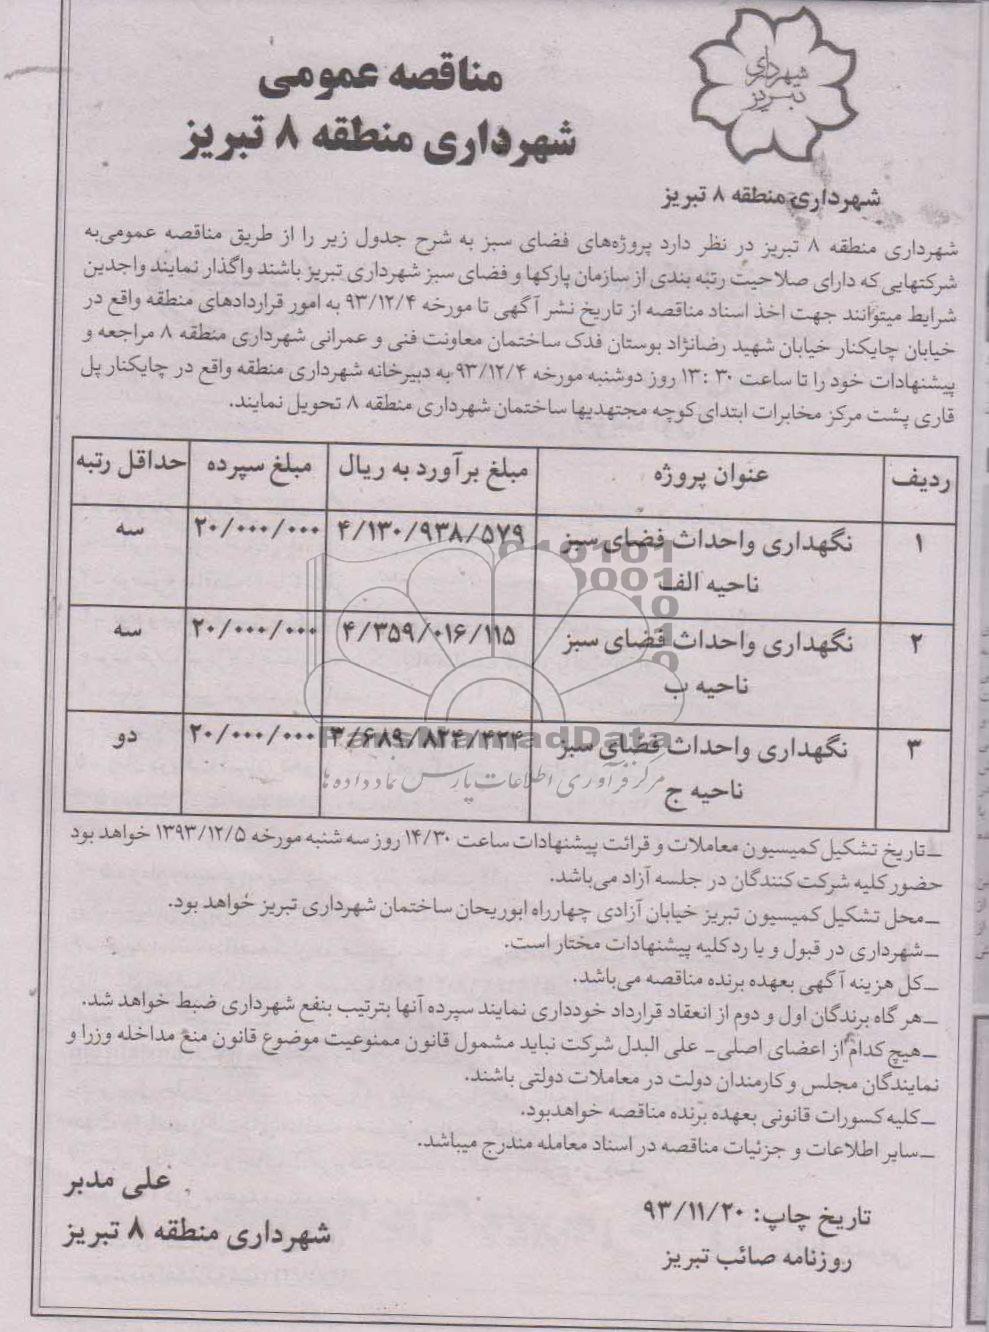 شهرداری
تبریز
مناقصه عمومی
شهرداری منطقه ۸ تبریز
شهرداری منطقه ۸ تبریز
شهرداری منطقه ۸ تبریز در نظر دارد پروژه‌های فضای سبز به شرح جدول زیر را از طریق مناقصه عمومی‌به
شرکتهایی که دارای صلاحیت رتبه بندی از سازمان پارکها و فضای سبز شهرداری تبریز باشند واگذار نمایند واجدین
شرایط میتوانند جهت اخذ اسناد مناقصه از تاریخ نشر آگهی تا مورخه ۹۳/۱۲/۴ به امور قراردادهای منطقه واقع در
خیابان چایکنار خیابان شهید رضانژاد بوستان فدک ساختمان معاونت فنی و عمرانی شهرداری منطقه ۸ مراجعه و
پیشنهادات خود را تا ساعت ۳۰ : ۱۳ روز دوشنبه مورخه ۹۳/۱۲/۴ به دبیرخانه شهرداری منطقه واقع در چایکنار پل
قاری پشت مرکز مخابرات ابتدای کوچه مجتهدیها ساختمان شهرداری منطقه ۸ تحویل نمایند.
ردیف عنوان پروژه مبلغ برآورد به ریال مبلغ سپرده حداقل رتبه
۱ نگهداری واحداث فضای سبز ۴/۱۳۰/۹۳۸/۵۷۹ ۲۰/۰۰۰/۰۰۰ سه
ناحیه الف
۲ نگهداری واحداث فضای سبز ۴/۳۵۹/۰۱۶/۱۱۵ ۲۰/۰۰۰/۰۰۰ سه
ناحیه ب
۳ نگهداری واحداث فضای سبز ۳/۶۸۹/۸۲۴/۴۲۴ ۲۰/۰۰۰/۰۰۰ دو
ناحیه ج
ParsNamadData
مرکز فرآوری اطلاعات پارس نماد داده ها
ـ تاریخ تشکیل کمیسیون معاملات و قرائت پیشنهادات ساعت ۱۴/۳۰ روز سه شنبه مورخه ۱۳۹۳/۱۲/۵ خواهد بود
حضور کلیه شرکت کنندگان در جلسه آزاد می‌باشد.
ـ محل تشکیل کمیسیون تبریز خیابان آزادی چهارراه ابوریحان ساختمان شهرداری تبریز خواهد بود.
ـ شهرداری در قبول و یا رد کلیه پیشنهادات مختار است.
ـ کل هزینه آگهی بعهده برنده مناقصه می‌باشد.
ـ هر گاه برندگان اول و دوم از انعقاد قرارداد خودداری نمایند سپرده آنها بترتیب بنفع شهرداری ضبط خواهد شد.
ـ هیچ کدام از اعضای اصلی ـ علی البدل شرکت نباید مشمول قانون ممنوعیت موضوع قانون منع مداخله وزرا و
نمایندگان مجلس و کارمندان دولت در معاملات دولتی باشند.
ـ کلیه کسورات قانونی بعهده برنده مناقصه خواهدبود.
ـ سایر اطلاعات و جزئیات مناقصه در اسناد معامله مندرج میباشد.
تاریخ چاپ: ۹۳/۱۱/۲۰
روزنامه صائب تبریز
علی مدبر
شهرداری منطقه ۸ تبریز